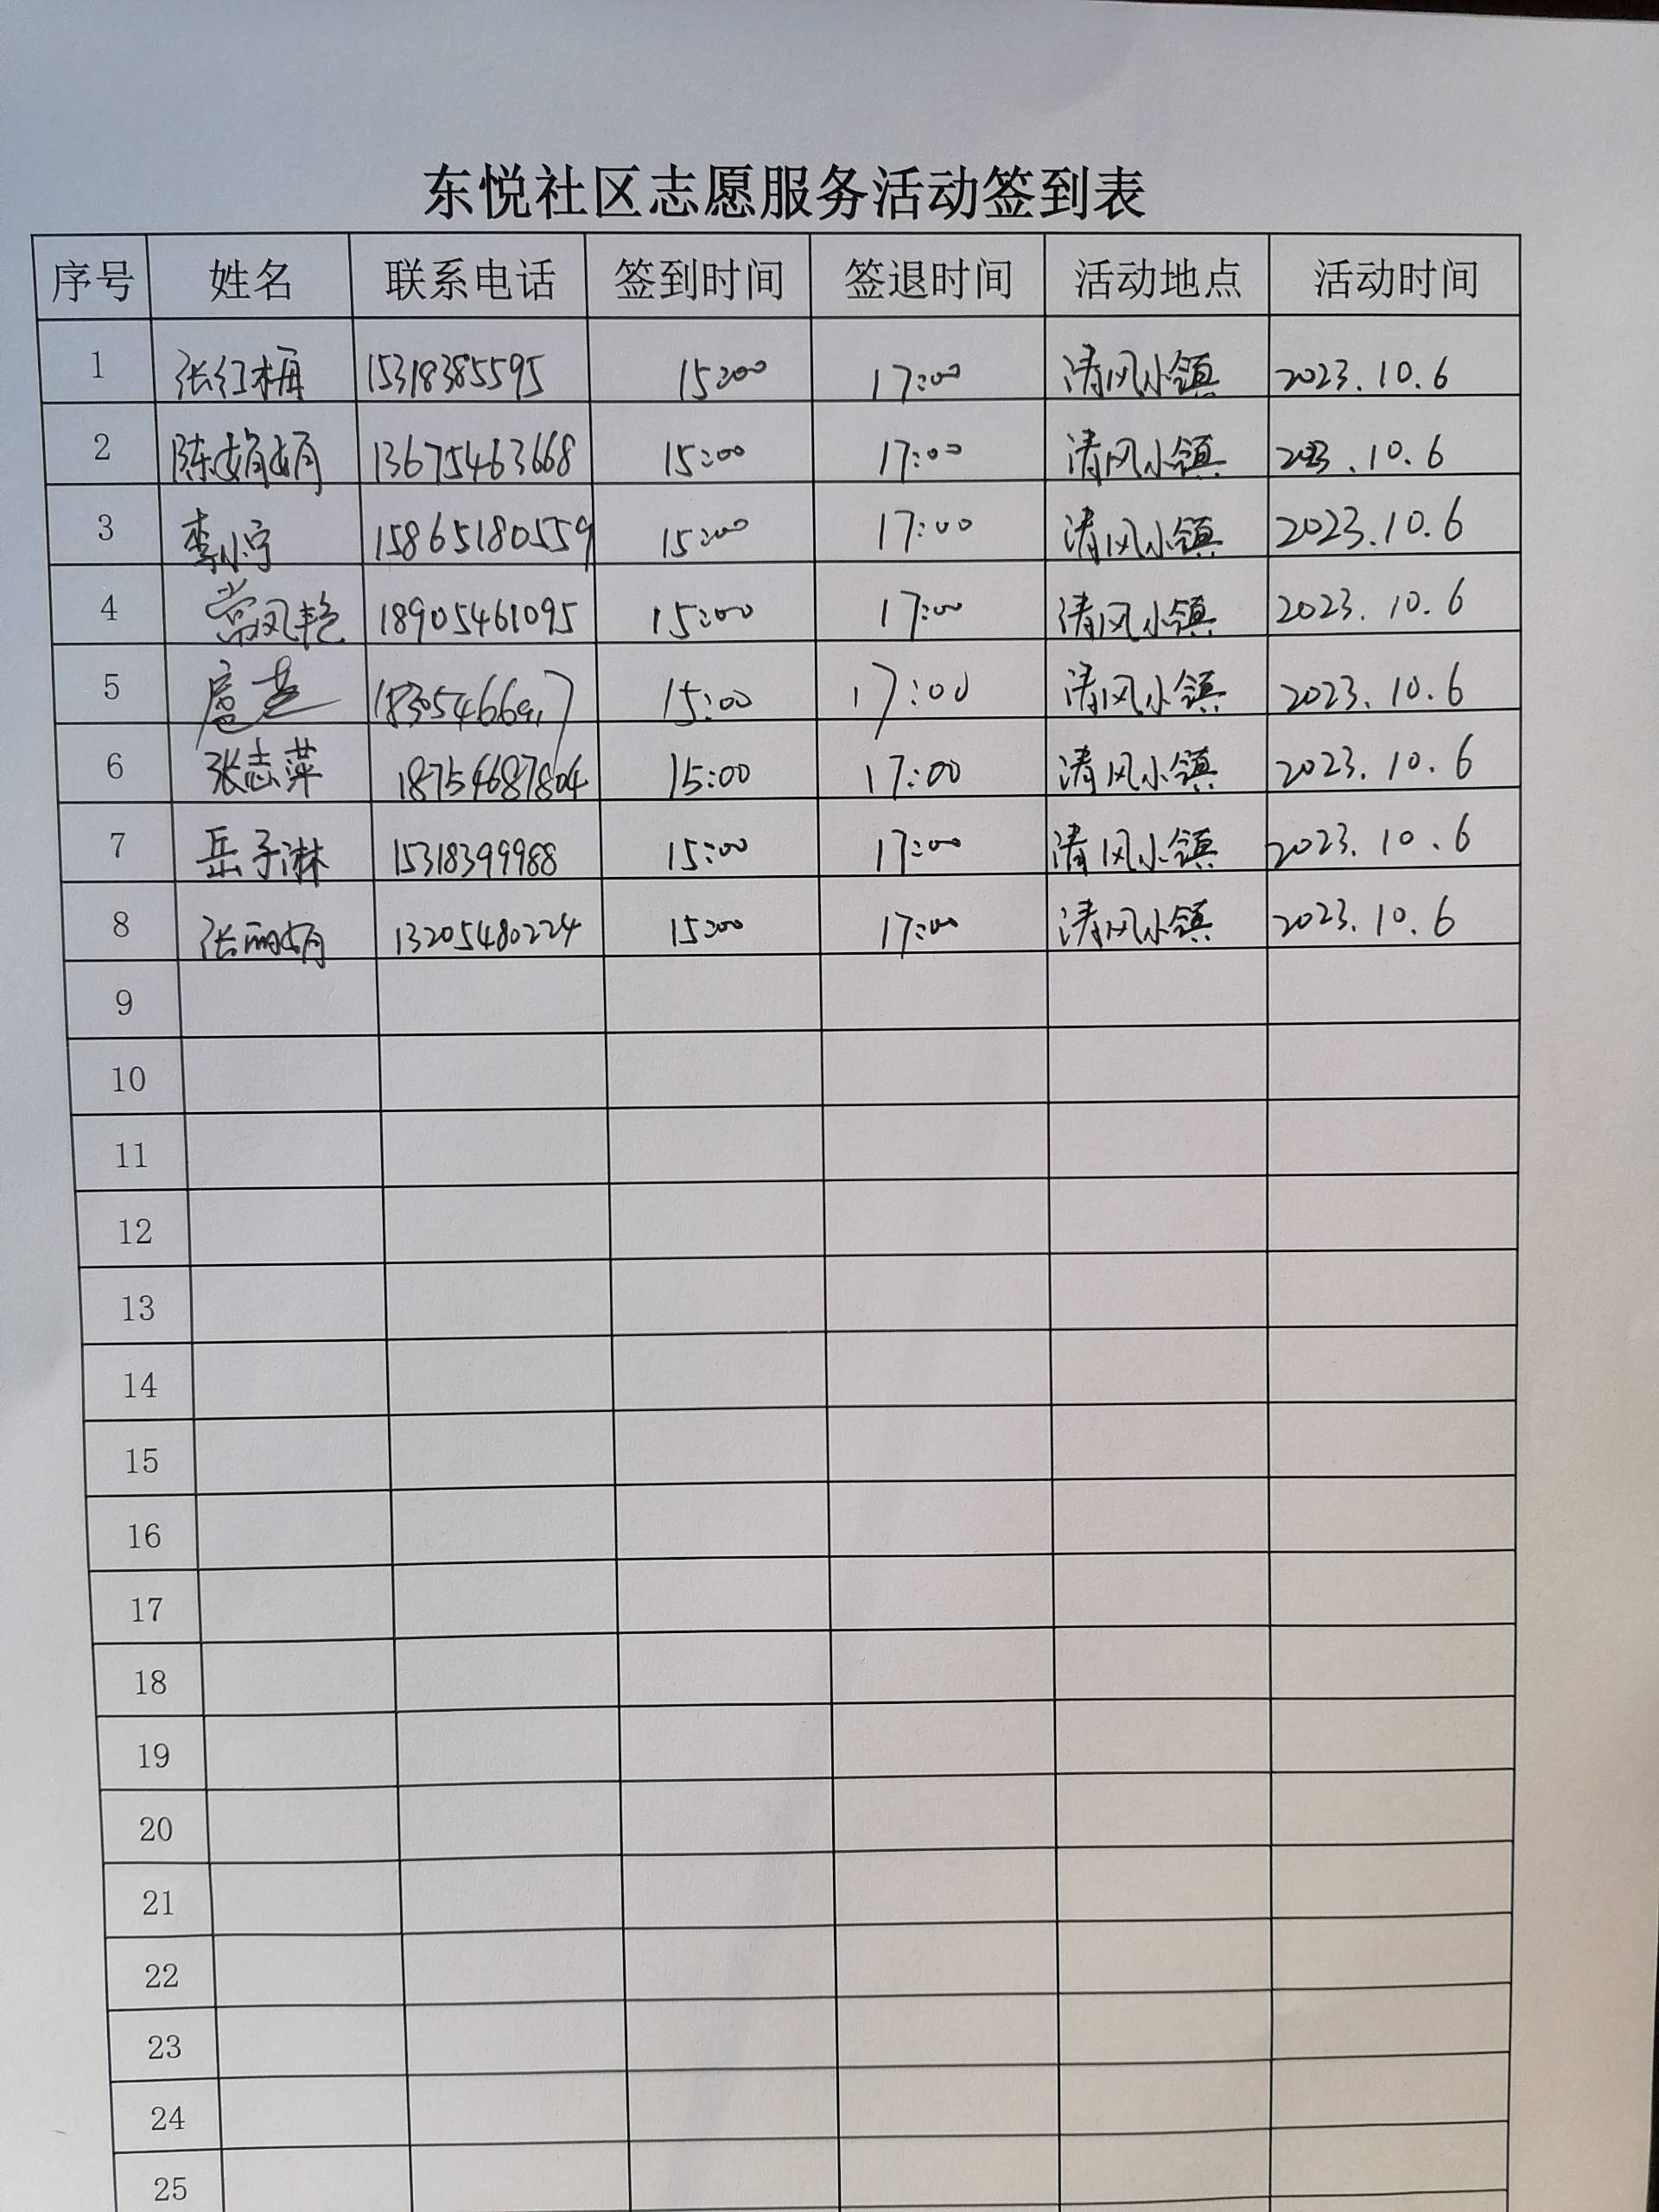 东悦社区志愿服务活动签到表
序号 姓名 联系电话 签到时间 签退时间 活动地点 活动时间
1 张红梅 15318385595 15:00 17:00 清风小镇 2023.10.6
2 陈娟娟 13675463668 15:00 17:00 清风小镇 2023.10.6
3 李小宁 15865180559 15:00 17:00 清风小镇 2023.10.6
4 常凤艳 18905461095 15:00 17:00 清风小镇 2023.10.6
5 15:00 17:00 清风小镇 2023.10.6
6 张志萍 18754687804 15:00 17:00 清风小镇 2023.10.6
7 岳子淋 15318399988 15:00 17:00 清风小镇 2023.10.6
8 张丽娟 13205480224 15:00 17:00 清风小镇 2023.10.6
9
10
11
12
13
14
15
16
17
18
19
20
21
22
23
24
25